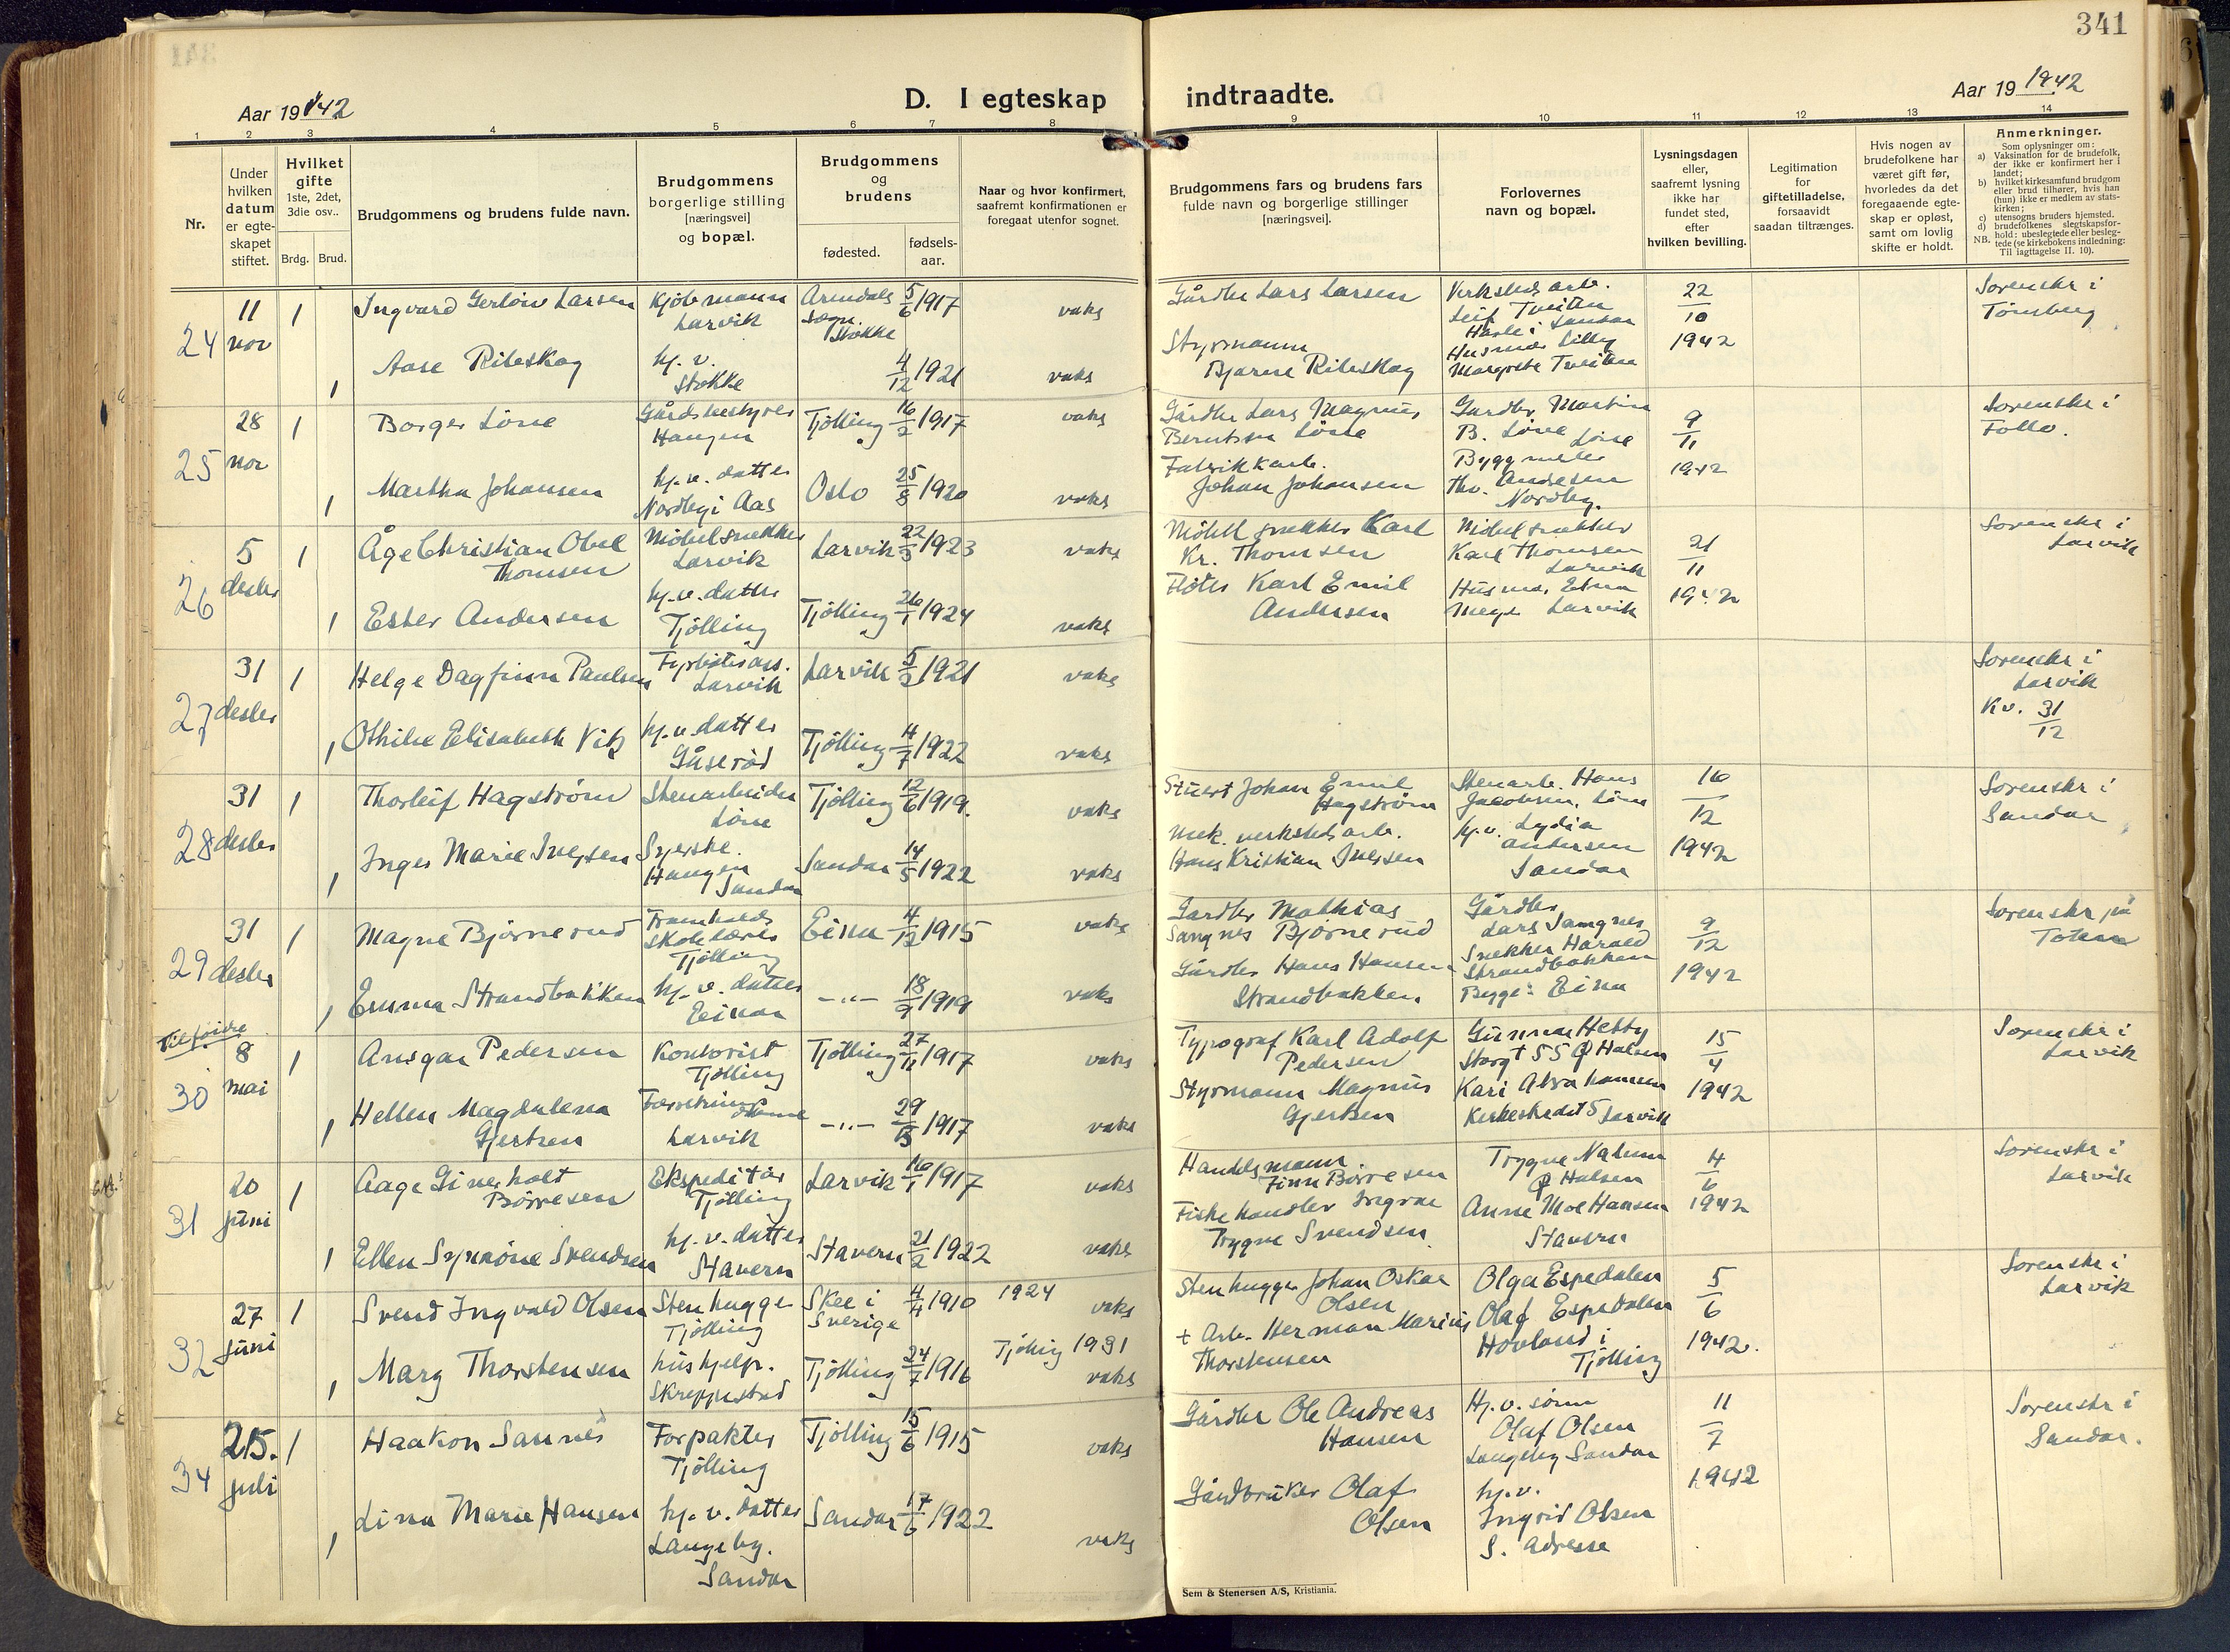 341
Aar 1942
D. I egteskap indtraadte.
Aar 19 1942
1 2 3 4 5 6 7 8 9 10 11 12 13 14
Nr.
Under hvilken datum er egte-skapet stiftet.
Hvilket gifte
1ste, 2det, 3die osv..
Brdg. Brud.
Brudgommens og brudens fulde navn.
Brudgommens borgerlige stilling [næringsvei] og bopæl.
Brudgommens og brudens
fødested.
fødsels-aar.
Naar og hvor konfirmert, saafremt konfirmationen er foregaat utenfor sognet.
Brudgommens fars og brudens fars fulde navn og borgerlige stillinger [næringsvei].
Forlovernes navn og bopæl.
Lysningsdagen eller, saafremt lysning ikke har fundet sted, efter hvilken bevilling.
Legitimation for giftetilladelse, forsaavidt saadan tiltrænges.
Hvis nogen av brudefolkene har været gift før, hvorledes da det foregaaende egte-skap er opløst, samt om lovlig skifte er holdt.
Anmerkninger.
Som oplysninger om:
a) Vaksination for de brudefolk, der ikke er konfirmert her i landet;
b) hvilket kirkesamfund brudgom eller brud tilhører, hvis han (hun) ikke er medlem av stats-kirken;
c) utensogns bruders hjemsted.
d) brudefolkenes slegtskapsfor-hold: ubeslegtede eller besleg-tede (se kirkebokens indledning:
NB. Til iagttagelse II. 10).
24 11 nov 1 Ingvard Larsen Kjøbmann Larvik Arendals sogn Stokke 5/6 1917 vaks Gårdbr Lars Larsen Verksteds arb. Leif Tveiten 22/10 1942 Sorenskr i Tønsberg
1 Aase Ribeskog hj. v. Stokke 4/12 1921 vaks Styrmann Bjarne Ribeskog Husmor Lilly Margrete Tveiten
25 28 nov 1 Borger Löve Gårdsbestyrer Haugen Tjölling 16/2 1917 vaks Gårdbr Lars Magnus Berntsen Löve Gardbr. Martin B. Löve Löve 9/11 1942 Sorenskr i Follo.
1 Martha Johansen hj. v. datter Nordby i Aas Oslo 25/8 1920 vaks Fabrikkarb. Johan Johansen Byggmester Thv. Andresen Nordby
26 5 desbr 1 Åge Christian Obel Thomsen Möbelsnekker Larvik Larvik 22/3 1923 vaks Möbelsnekker Karl Kr. Thomsen Möbelsnekker Karl Thomsen Larvik 21/11 1942 Sorenskr i Larvik
1 Ester Andersen hj. v. datter Tjölling Tjölling 26/1 1924 vaks Fløter Karl Emil Andersen Husmor Larvik
27 31 desbr 1 Helge Dagfinn Paulsen Fyrbøterass. Larvik Larvik 5/2 1921 vaks Sorenskr i Larvik
1 Othilie Elisabeth Vik hj. v. datter Gåserød Tjölling 4/7 1922 vaks Kv. 31/12
28 31 desbr 1 Thorleif Hagström Stenarbeider Löve Tjölling 12/6 1919. vaks Johan Emil Hagström Stenarb. Hans Jacobsen, Löve 16/12 1942 Sorenskr i Sandar
1 Inger Marie Iversen Syerske. Haugen Sandar Sandar 14/5 1922 vaks Mek. verksteds arb. Hans Kristian Iversen hj. v. Lydia Andersen Sandar
29 31 desbr 1 Magne Bjørnerud Framhalds skolelærer Tjölling Eina 4/12 1915 vaks Gardbr Mathias Sangnes Bjørnerud Gårdbr Lars Sangnes 9/12 1942 Sorenskr på Toten
1 Emma Strandbakken hj. v. datter Einar -"- 18/9 1919 vaks Gårdbr Hans Hansen Strandbakken Snekker Harald Strandbakken Begge: Eina
Tilføide
30 8 mai 1 Ansgar Pedersen Kontorist Tjölling Tjölling 27/11 1917 vaks Typograf Karl Adolf Pedersen Gunnar Hetty Storgt 55 Halsen 15/4 1942 Sorenskr i Larvik
1 Hellen Magdalena Gjertsen Forretnings dame Larvik -"- 1917 vaks Styrmann Magnus Gjertsen Kari Abrahamsen Kirkestredet 5 Larvik
31 20 juni 1 Aage Børresen Ekspeditør Tjölling Larvik 16/1 1917 vaks Handelsmann Finn Börresen Trygve Nalum Halsen 4/6 1942 Sorenskr i Larvik
1 Ellen Synnöve Svendsen hj. v. datter Stavern Stavern 21/2 1922 vaks Fiskehandler Ingvar Trygve Svendsen Anne Moe Hansen Stavern
32 27 juni 1 Svend Ingvald Olsen Stenhugger Tjölling Skee i Sverige 4/4 1910 1924 vaks Stenhugger Johan Oskar Olsen Olga Espedalen 5/6 1942. Sorenskr i Larvik
1 Marg Thorstensen hushjelp. Skreppestad Tjölling 24/7 1916 Tjölling 1931 vaks + Arb. Herman Marius Thorstensen Olaf Espedalen Hovland i Tjölling
34 25. juli 1 Haakon Sannes Forpakter Tjölling Tjölling 15/6 1915 vaks Gårdbr Ole Andreas Hansen Hj. v. sønn Olaf Olsen Langeby Sandar 11/7 1942 Sorenskr i Sandar.
1 Lina Marie Hansen hj. v. datter Langeby. Sandar Sandar 17/6 1922 vaks Gårdbruker Olaf Olsen hj. v. Ingrid Olsen S. adresse
Sem & Stenersen A/S, Kristiania.